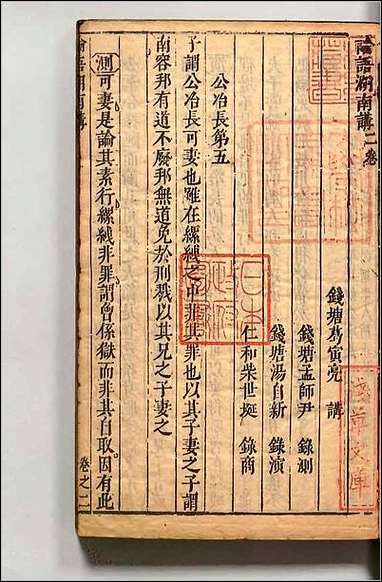 論語湖南講二卷
錢塘葛寅亮 講
錢塘孟師尹 錄測
錢塘湯自新 錄演
仁和柴世埏 錄商
公冶長第五
子謂公冶長可妻也雖在縲絏之中非其罪也以其子妻之子謂
南容邦有道不廢邦無道免於刑戮以其兄之子妻之
測可妻是論其素行縲絏非罪謂曾係獄而非其自取因有此
論語湖南講
卷之二
日本
文庫